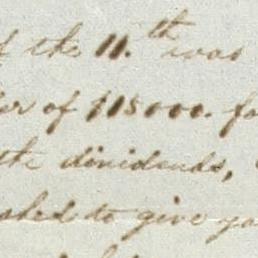 of the 11.th was
of $115000. fo
the dividends,
to give yo